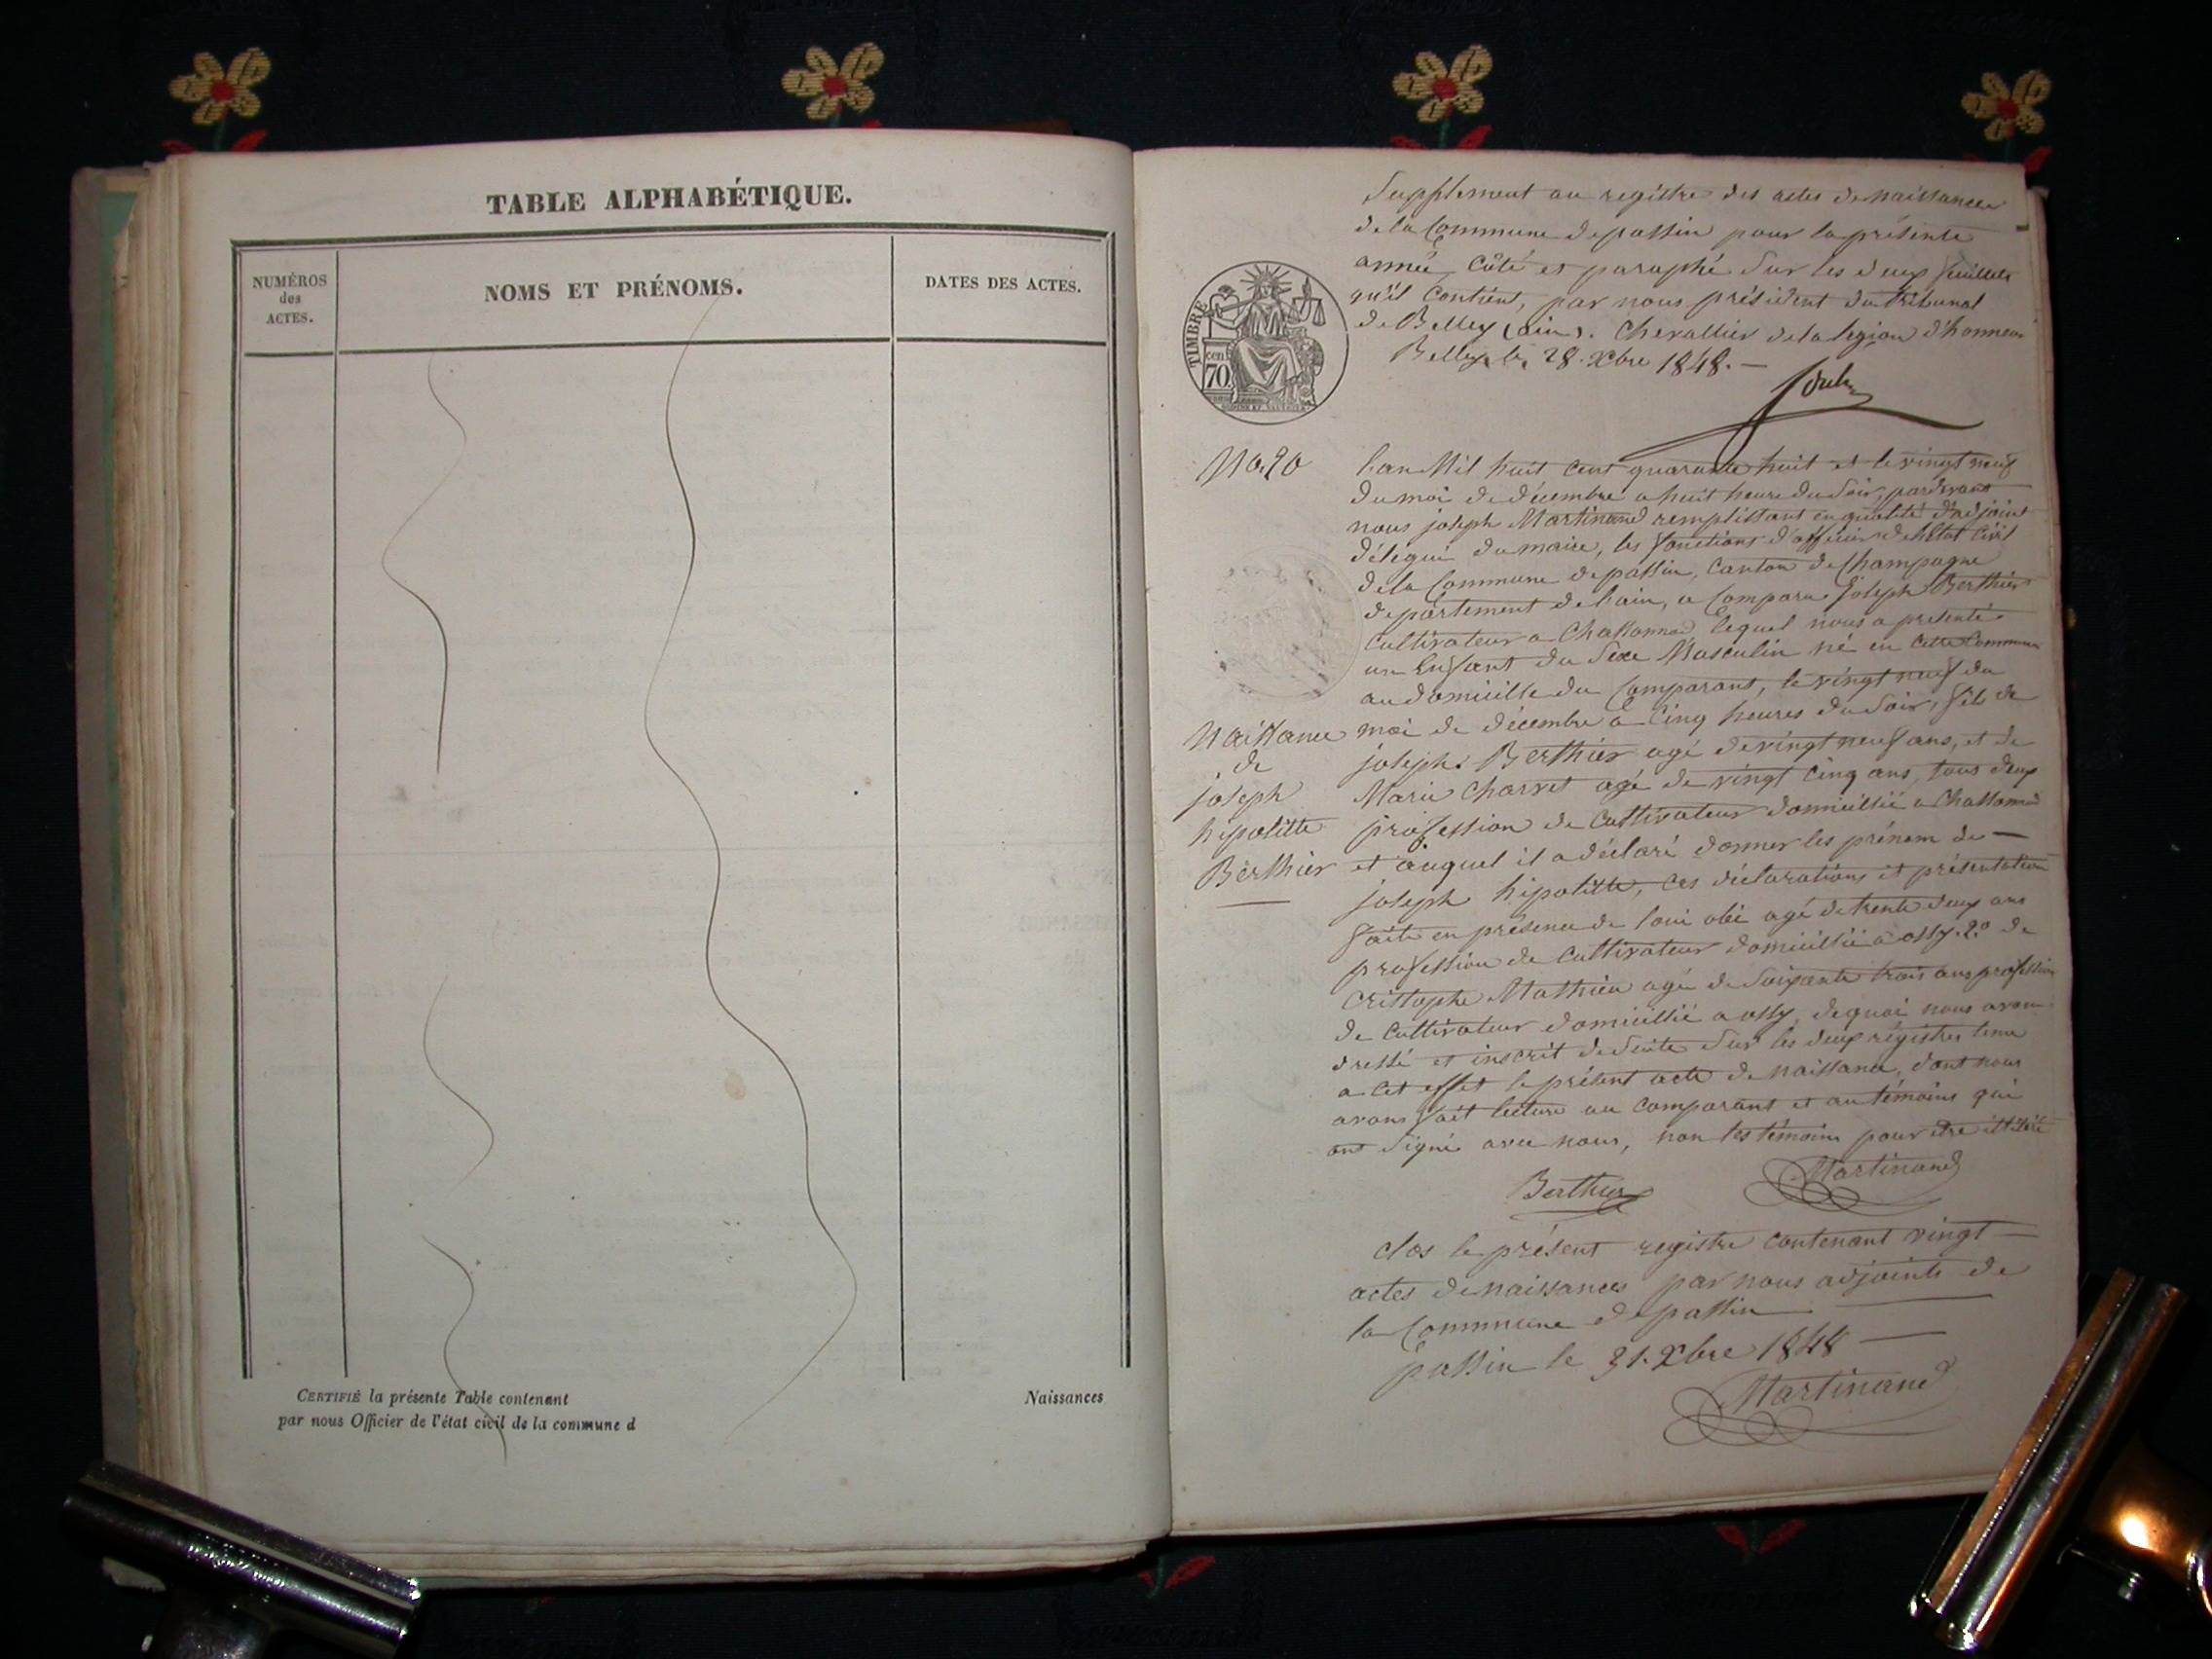 TABLE ALPHABÉTIQUE.
NUMÉROS
des
ACTES.
NOMS ET PRÉNOMS.
DATES DES ACTES.
CERTIFIÉ la présente Table contenant
par nous Officier de l'état civil de la commune d
Naissances
Supplement au registre des actes de naissances
de la Commune de passin pour la présente
année, côté et paraphé sur les deux feuillets
qu'il contient, par nous président du tribunal
de Belley (ain). Chevallier de la légion d'honneur
Belley, le 28. Xbre 1848. —
TIMBRE
cen
70
No. 20
l'an Mil huit cent quarante huit et le vingt neuf
du moi de décembre a huit heure du soir, pardevant
nous joseph Martinand remplissant en qualité d'adjoint
délégué du maire, les fonctions d'officier de l'état civil
de la Commune de passin, Canton de Champagne
departement de l'ain, a Comparu joseph Berthier
Cultivateur a Chassonnod lequel nous a présenté
un Enfant du sexe Masculin né en cette Commune
au domicille du Comparant, le vingt neuf du
moi de décembre a cinq heures du soir, fils de
joseph Berthier agé de vingt neuf ans, et de
Marie Charvet agé de vingt cinq ans, tous deux
profession de Cultivateur domicillié a Chassonnod
et auquel il a déclaré donner les prénom de —
joseph hipolitte, ces déclarations et présentation
faite en présence de loui obi agé de trente deux ans
profession de Cultivateur domicillié a ossy. 2° de
Cristophe Mathieu agé de soixante trois ans profession
de Cultivateur domicillié a ossy, dequoi nous avons
dressé et inscrit de suite sur les deux régistres tenu
a cet effet le présent acte de naissance, dont nous
avons fait lecture au comparant et au témoins qui
ont signé avec nous, non les témoins pour être illitéré
Naissance
de
joseph
hipolitte
Berthier
Berthier
Martinand
clos le présent registre contenant vingt —
actes de naissances par nous adjoints de
la Commune de passin
passin le 31. Xbre 1848 —
Martinand